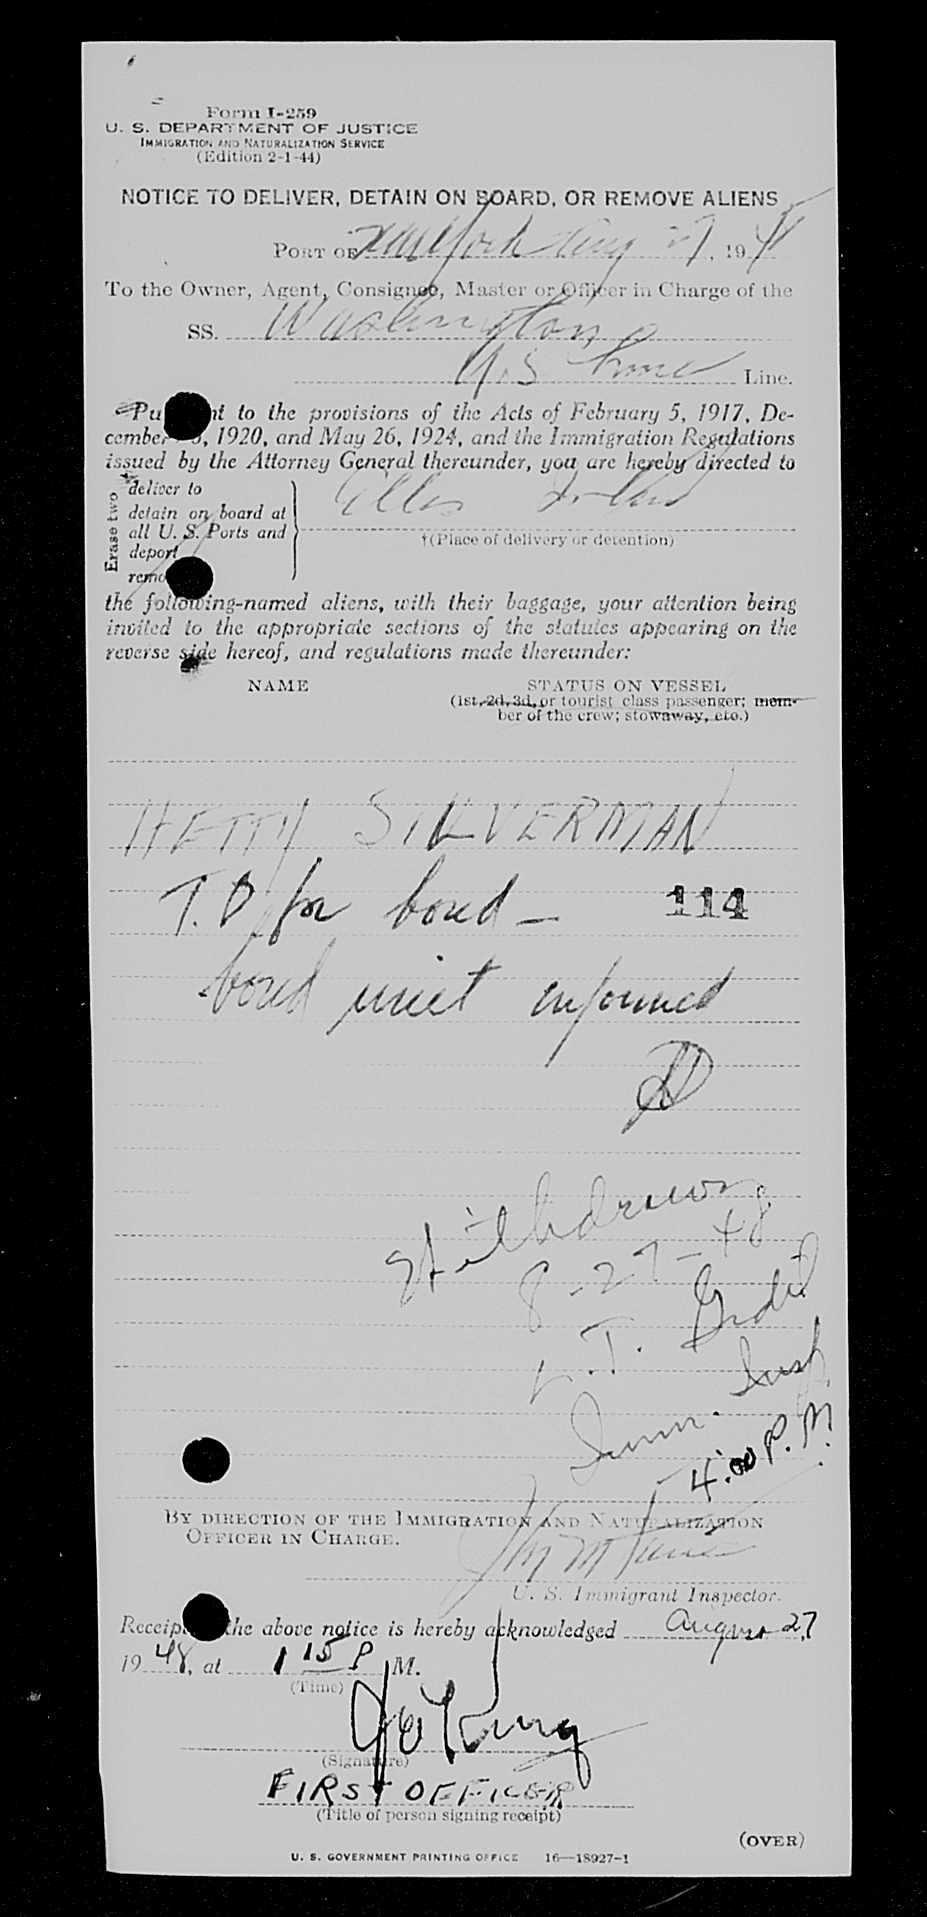 Form I-259
U. S. DEPARTMENT OF JUSTICE
IMMIGRATION AND NATURALIZATION SERVICE
(Edition 2-1-44)
NOTICE TO DELIVER, DETAIN ON BOARD, OR REMOVE ALIENS
PORT OF New York Aug 27, 1948
To the Owner, Agent, Consignee, Master or Officer in Charge of the
SS. Washington
U.S. Lines Line.
to the provisions of the Acts of February 5, 1917, De-
cember 1920, and May 26, 1924, and the Immigration Regulations
issued by the Attorney General thereunder, you are hereby directed to
Erase two
deliver to
detain on board at
all U. S. Ports and
deport
Ellis Island
†(Place of delivery or detention)
the following-named aliens, with their baggage, your attention being
invited to the appropriate sections of the statutes appearing on the
reverse side hereof, and regulations made thereunder:
NAME STATUS ON VESSEL
(1st, 2d, 3d, or tourist class passenger; mem-
ber of the crew; stowaway, etc.)
HETTY SILVERMAN
T.D for bond - 114
bond unit informed
Withdrawn
8-27-48
L.T.
Imm. Insp.
4:00 P.M.
BY DIRECTION OF THE IMMIGRATION AND NATURALIZATION
OFFICER IN CHARGE.
U. S. Immigrant Inspector.
the above notice is hereby acknowledged August 27,
1948, at 1 15 P M.
(Time)
(Signature)
FIRST OFFICER
(Title of person signing receipt)
(OVER)
U. S. GOVERNMENT PRINTING OFFICE 16—18927-1